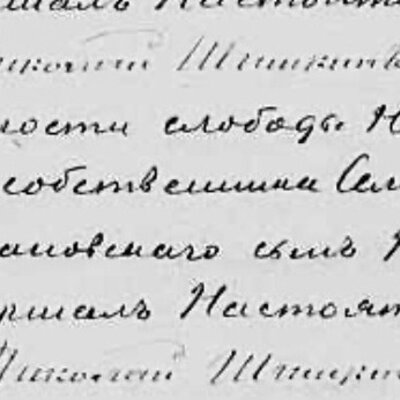 шалъ Настоят
иколай
ности слободы Н
собственника Сем
ановскаго сынъ
ршалъ Настоят
Николай